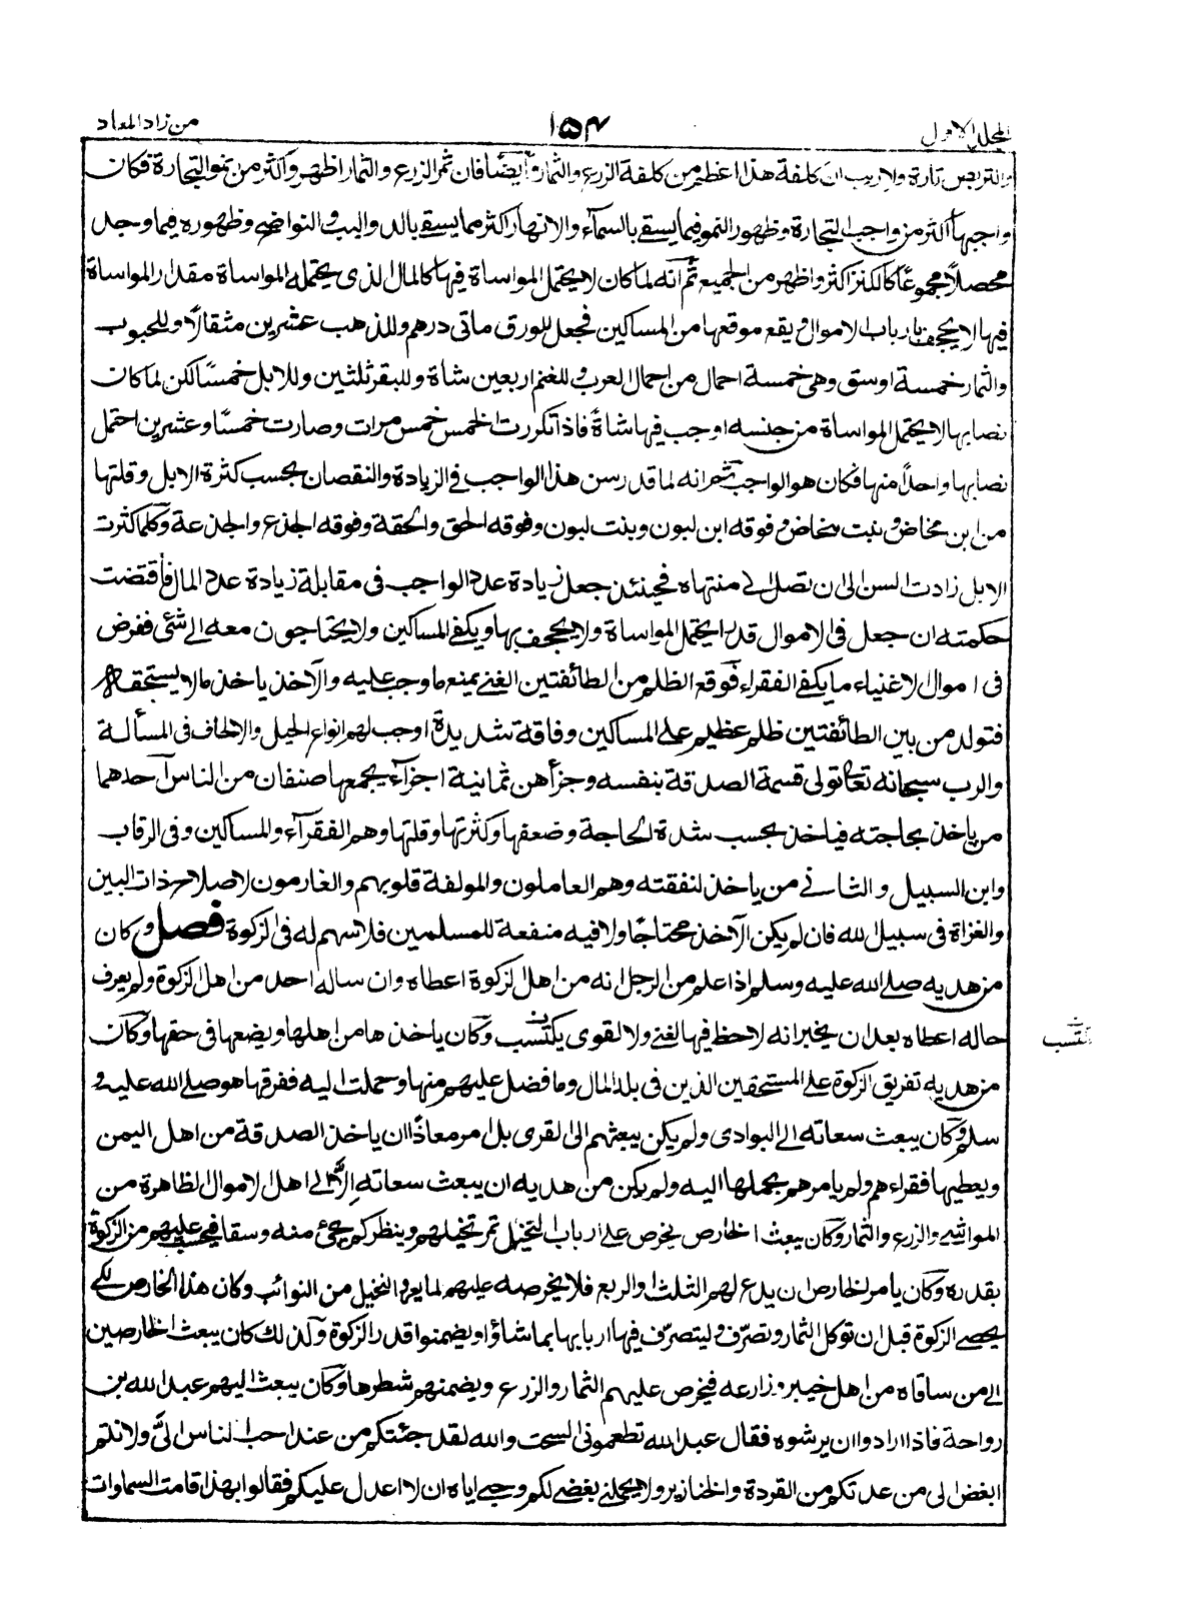 المجلد الاول ١٥٤ من زاد المعاد
والتربص تارة ولا ريب ان كلفة هذا اعظم من كلفة الزرع والثمار وأيضًا فان نمو الزرع والثمار اظهر وأكثر من نمو التجارة فكان
واجبها اكثر من واجب التجارة وظهور النمو فيما يسقى بالسمآء والانهار اكثر مما يسقى بالدوالیب والنواضح وظهوره فيما وجد
محصلاً مجموعًا كالكنز اكثر واظهر من الجميع ثم أنه لما كان لا يحتمل المواساة فيها كالمال الذى يحتمل المواساة مقدار المواساة
فيها لا يجحف بارباب الاموال ويقع موقعها من المساكين فجعل للورق ماتى درهم وللذهب عشرين مثقالًا وللحبوب
والثمار خمسة اوسق وهى خمسة احمال من احمال العرب وللغنم اربعين شاة وللبقر ثلثين وللابل خمسًا لكن لما كان
نصابها لا يحتمل المواساة من جنسه اوجب فيها شاةً فاذا تكررت الخمس خمس مرات وصارت خمسًا وعشرين احتمل
نصابها واحدًا منها فكان هو الواجب ثم انه لما قدر سن هذا الواجب فى الزيادة والنقصان بحسب كثرة الابل وقلتها
من ابن مخاض وبنت مخاض وفوقه ابن لبون وبنت لبون وفوقه الحق والحقة وفوقه الجذع والجذعة وكلما كثرت
الابل زادت السن الى ان تصل الى منتهاه فحينئذ جعل زيادة عدد الواجب فى مقابلة زيادة عدد المال فاقتضت
حكمته ان جعل فى الاموال قدرا يحتمل المواساة ولا يجحف بها ويكفى المساكين ولا يحتاجون معه الى شئى ففرض
فى اموال الاغنياء ما يكفى الفقراء فوقع الظلم من الطائفتين الغنى يمنع ما وجب عليه والآخذ ياخذ مالا يستحقه
فتولد من بين الطائفتين ظلم عظيم على المساكين وفاقة شديدة اوجب لهم انواع الحيل والالحاف فى المسألة
والرب سبحانه تعالى تولى قسمة الصدقة بنفسه وجزأهن ثمانية اجزآء يجمعها صنفان من الناس احدهما
من ياخذ بحاجته فياخذ بحسب شدة الحاجة وضعفها وكثرتها وقلتها وهم الفقرآء والمساكين وفى الرقاب
وابن السبيل والثانى من ياخذ لنفقته وهم العاملون والمولفة قلوبهم والغارمون لاصلاح ذات البين
والغزاة فى سبيل الله فان لم يكن الآخذ محتاجًا ولا فيه منفعة للمسلمين فلا سهم له فى الزكوة فصل وكان
من هديه صلى الله عليه وسلم اذا علم من الرجل انه من اهل الزكوة اعطاه وان ساله احد من اهل الزكوة ولم يعرف
حاله اعطاه بعد ان يخبر انه لا حظ فيها لغنى ولا لقوى يكتسب وكان ياخذها من اهلها ويضعها فى حقها وكان
من هديه تفريق الزكوة على المستحقين الذين فى بلد المال وما فضل عليهم منها وحملت اليه ففرقها هو صلى الله عليه و
سلم وكان يبعث سعاته الى البوادى ولم يكن يبعثهم الى القرى بل امر معاذًا ان ياخذ الصدقة من اهل اليمن
ويعطيها فقراءهم ولم يامرهم بحملها اليه ولم يكن من هديه ان يبعث سعاته إلّا الى اهل الاموال الظاهرة من
المواشى والزرع والثمار وكان يبعث الخارص يخرص على ارباب النخيل ثمر نخيلهم وينظر كم يجئ منه وسقا فيحسب عليهم من الزكوة
بقدره وكان يامر الخارص ان يدع لهم الثلث او الربع فلا يخرصه عليهم لما يعرو النخيل من النوائب وكان هذا الخارص لكى
يحصى الزكوة قبل ان توكل الثمار وتصرّف وليتصرّف فيها اربابها بما شاؤا ويضمنوا قدر الزكوة وكذلك كان يبعث الخارصين
الى من ساقاه من اهل خيبر وزارعه فيخرص عليهم الثمار والزرع ويضمنهم شطرها وكان يبعث اليهم عبد الله بن
رواحة فاذا ارادوا ان يرشوه فقال عبد الله تطعمونى السحت والله لقد جئتكم من عند احب الناس الىّ ولانتم
ابغض الى من عدتكم من القردة والخنازير ولا يحملنى بغضى لكم وحبى اياه ان لا اعدل عليكم فقالوا بهذا قامت السماوات